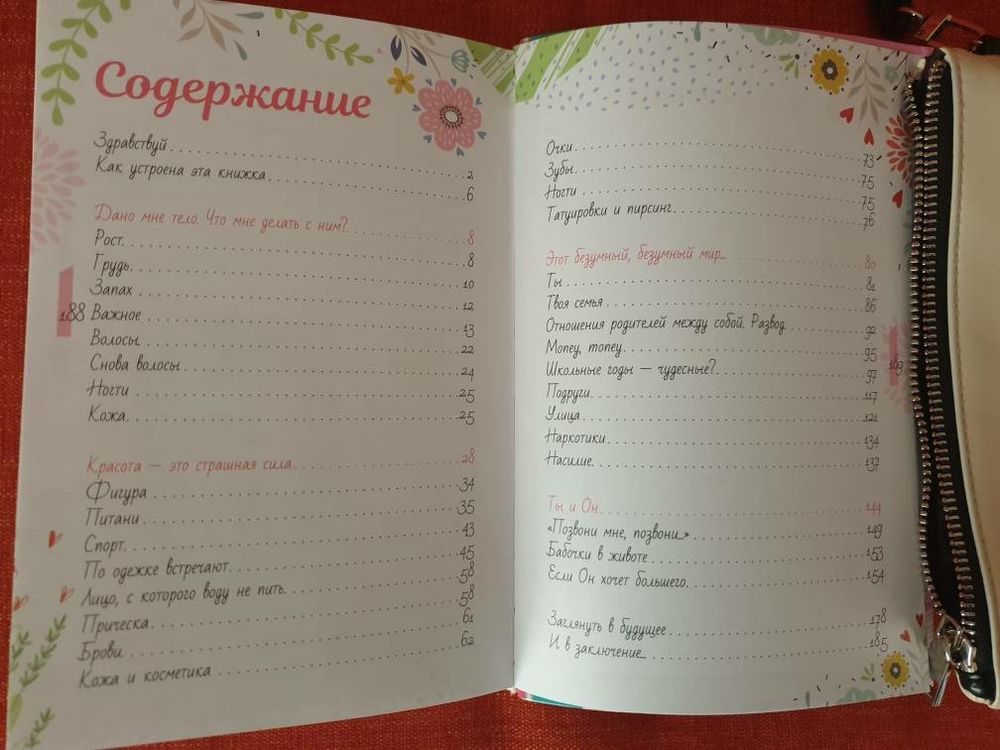 Содержание
Здравствуй 2
Как устроена эта книжка 6
Дано мне тело. Что мне делать с ним? 8
Рост 8
Грудь 10
Запах 12
188
Важное 13
Волосы 22
Снова волосы 24
Ногти 25
Кожа 25
Красота — это страшная сила 28
Фигура 34
Питани 35
Спорт 43
По одежке встречают 45
Лицо, с которого воду не пить 58
Прическа 58
Брови 61
Кожа и косметика 62
Очки 73
Зубы 75
Ногти 75
Татуировки и пирсинг 76
Этот безумный, безумный мир... 80
Ты 81
Твоя семья 86
Отношения родителей между собой. Развод 92
Мопец, топец 95
Школьные годы — чудесные? 97
189
Подруги 117
Улица 121
Наркотики 134
Насилие 137
Ты и Он 144
«Позвони мне, позвони...» 149
Бабочки в животе 153
Если Он хочет большего 154
Заглянуть в будущее 178
И в заключение... 185